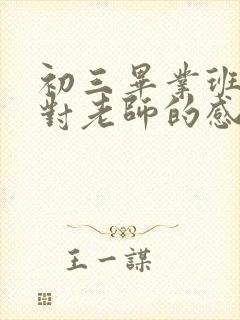 初三畢業班
對老師的感
王一謀